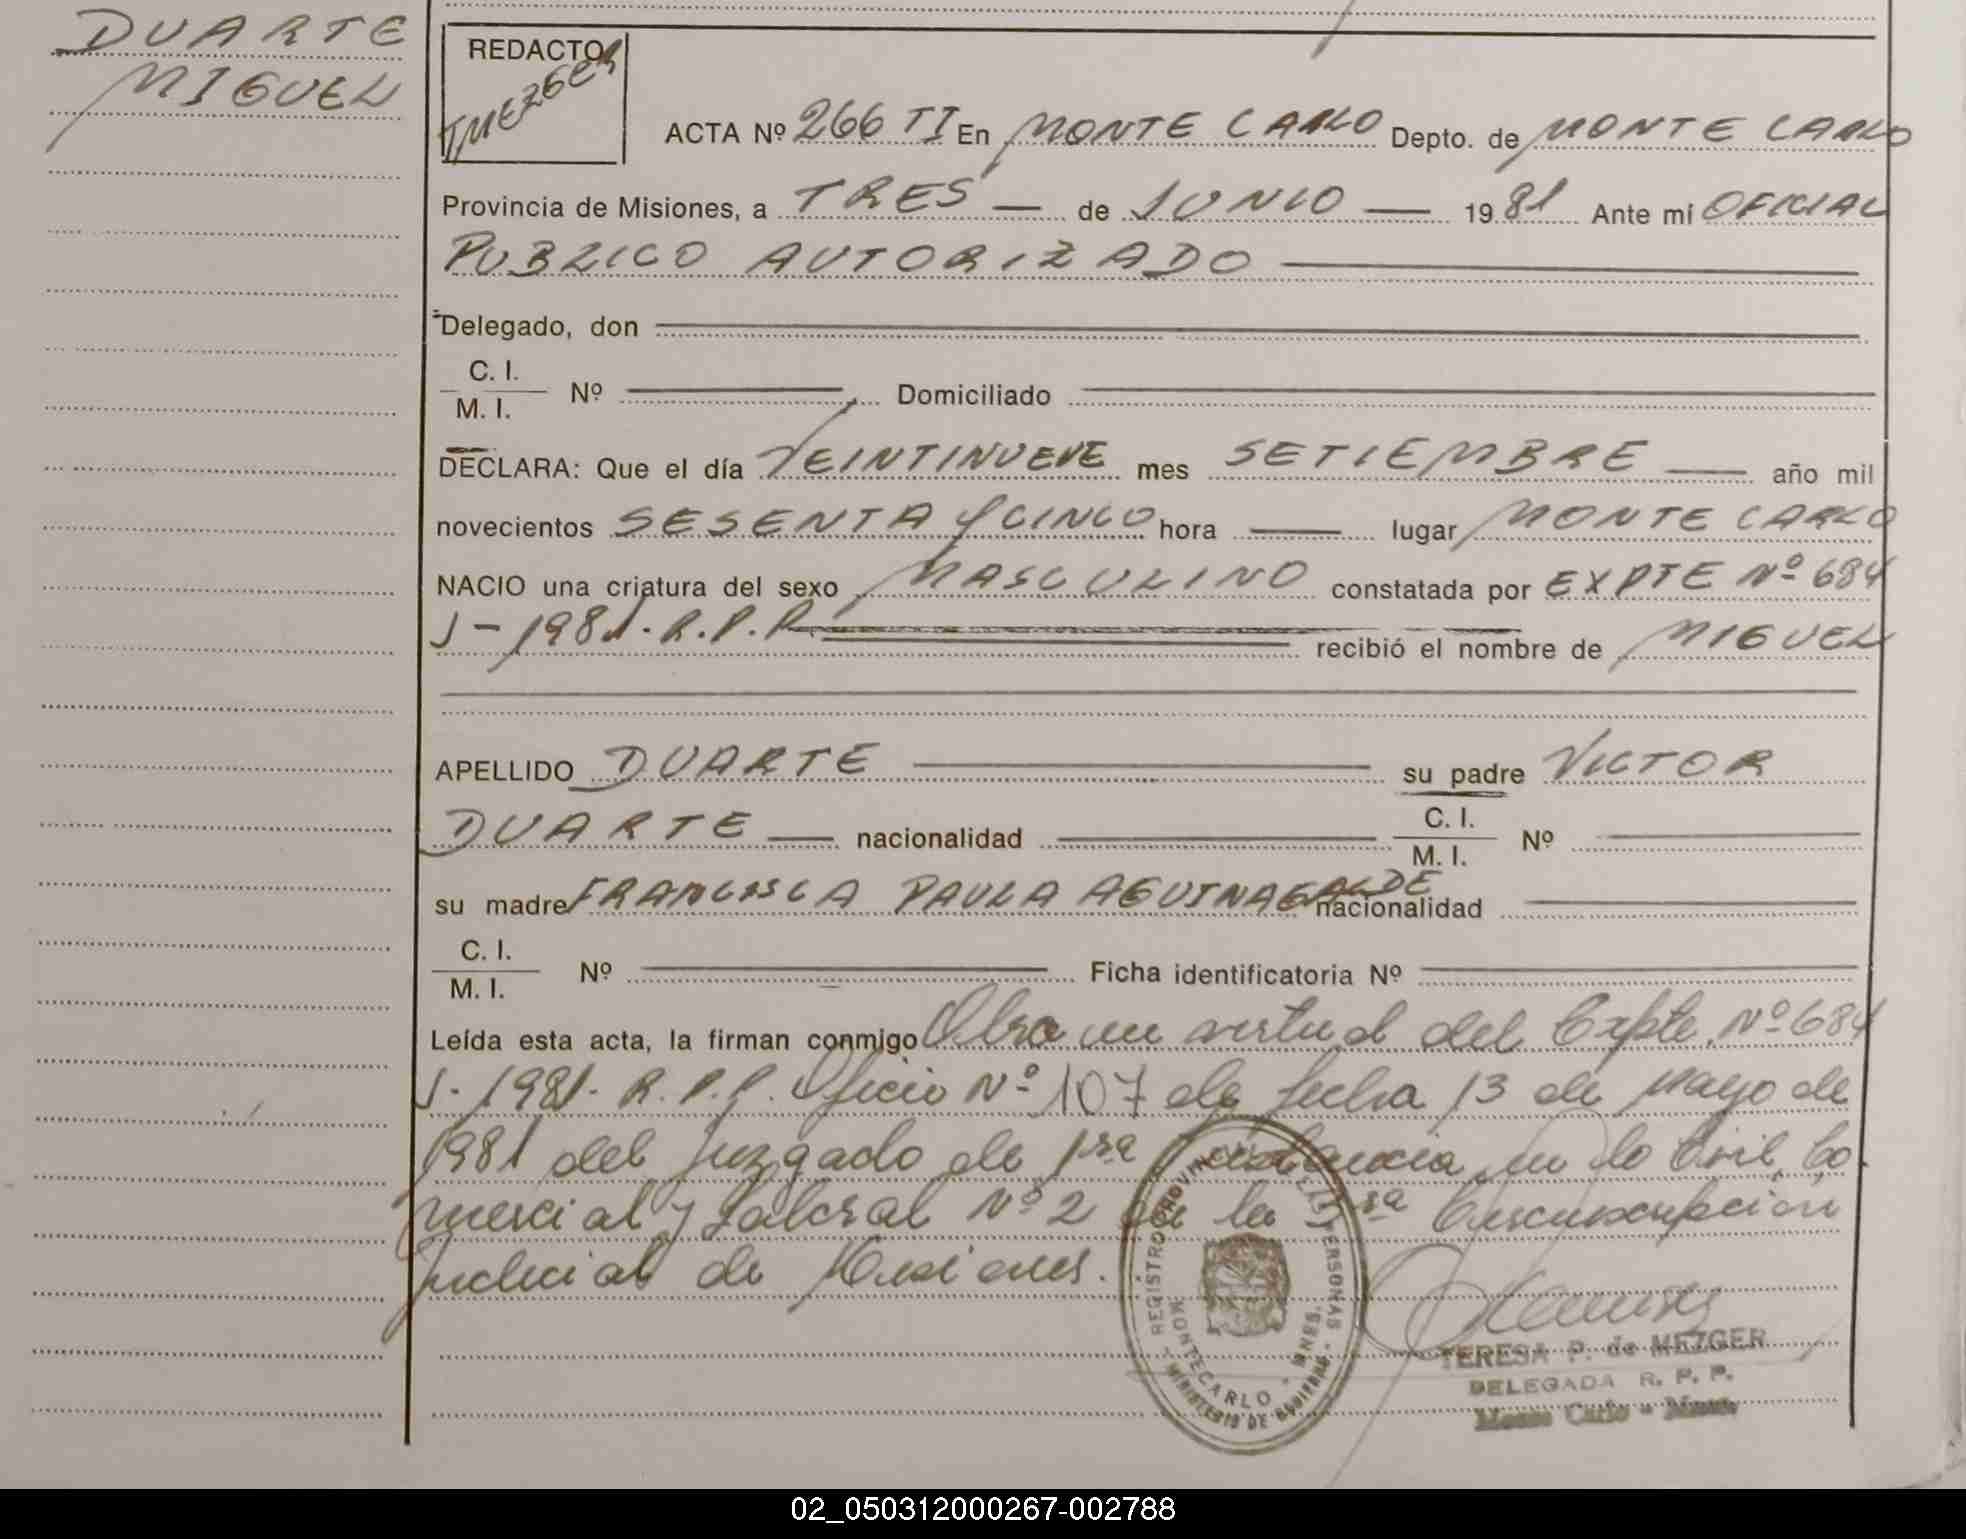 DUARTE
MIGUEL
REDACTO
TMEZGER
ACTA Nº 266 TI En MONTE CARLO Depto. de MONTE CARLO
Provincia de Misiones, a TRES — de JUNIO — 1981 Ante mí OFICIAL
PUBLICO AUTORIZADO
Delegado, don
C. I.
M. I. Nº Domiciliado
DECLARA: Que el día VEINTINUEVE mes SETIEMBRE — año mil
novecientos SESENTA Y CINCO hora — lugar MONTE CARLO
NACIO una criatura del sexo MASCULINO constatada por EXPTE Nº 684
J-1981. R.P.P. recibió el nombre de MIGUEL
APELLIDO DUARTE — su padre VICTOR
DUARTE — nacionalidad — C. I.
M. I. Nº
su madre FRANCISCA PAULA AGUINAGALDE nacionalidad
C. I.
M. I. Nº Ficha identificatoria Nº
Leída esta acta, la firman conmigo Obra en virtud del Expte. Nº 684
J-1981- R.P.P. Oficio Nº 107 de fecha 13 de Mayo de
1981 del Juzgado de 1ra Instancia en lo Civil, Co
mercial y Laboral Nº 2 de la 3ra Circunscripción
Judicial de Misiones.
REGISTRO PROVINCIAL DE LAS PERSONAS
MONTECARLO - MNES.
MINISTERIO DE GOBIERNO
TERESA P. de MEZGER
DELEGADA R. P. P.
Monte Carlo - Mnes.
02_050312000267-002788